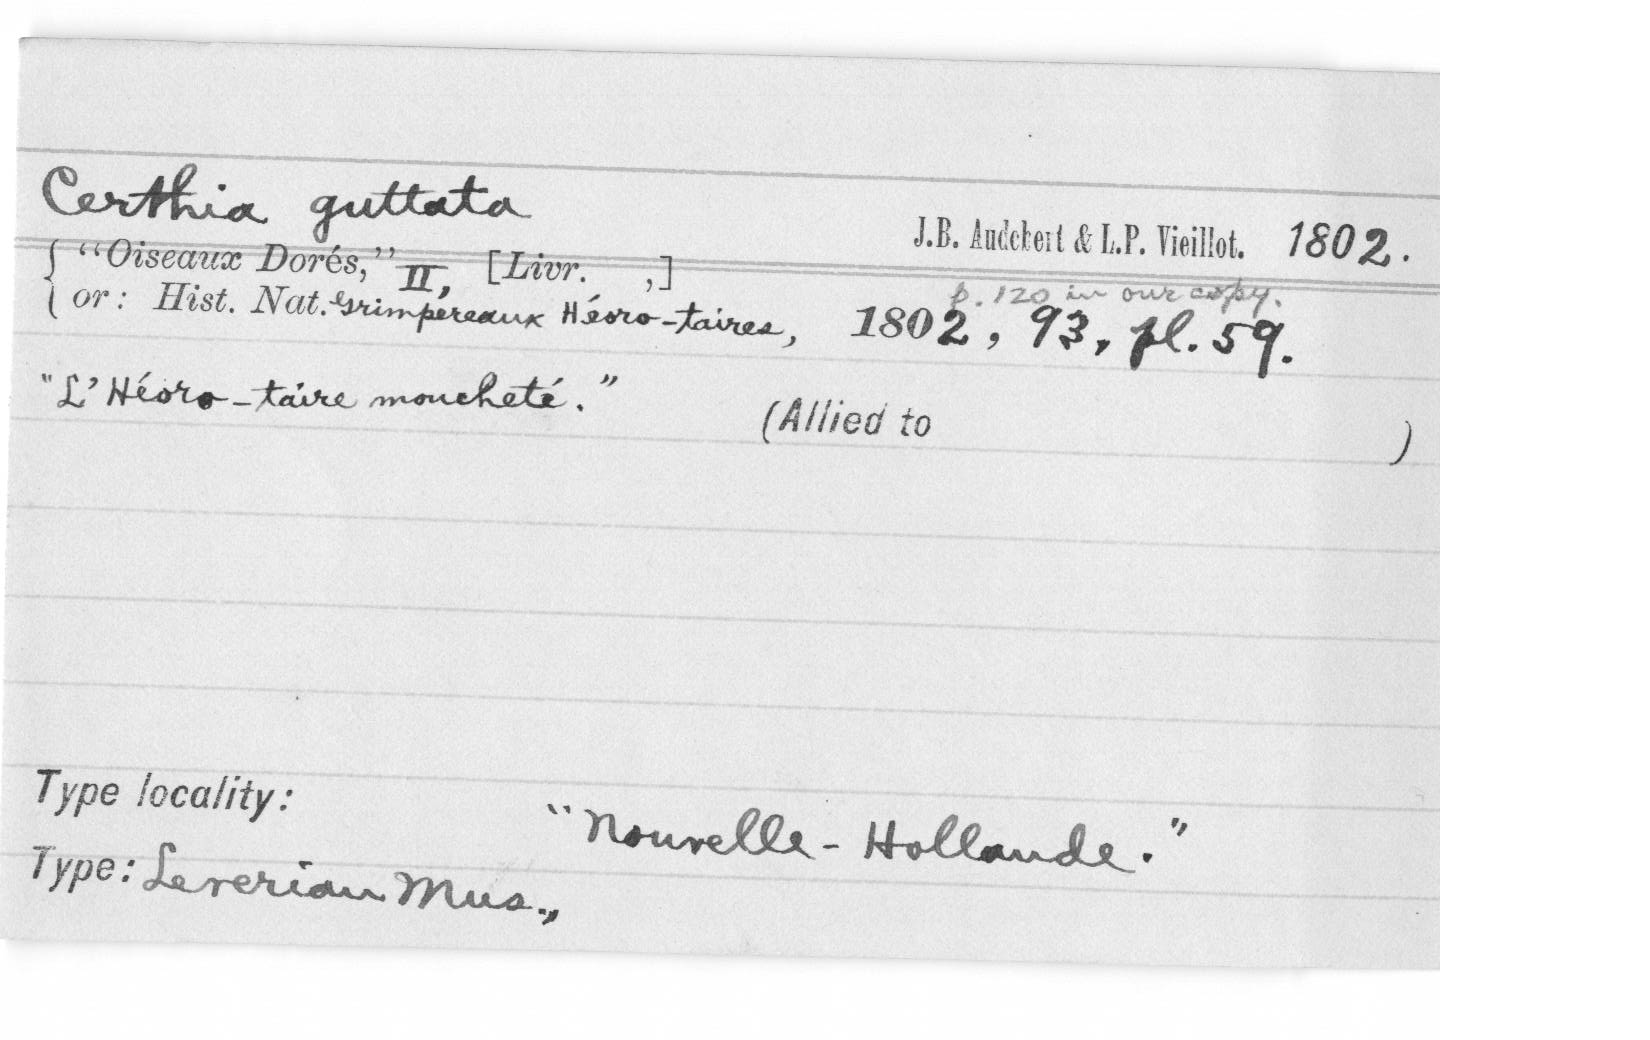 Certhia guttata
J.B. Audebert & L.P. Vieillot. 1802.
{ "Oiseaux Dorés," II, [Livr. ,]
p. 120 in our copy.
or: Hist. Nat. Grimpereaux Héoro-taires, 1802, 93, pl. 59.
"L'Héoro-taire moucheté."
(Allied to )
Type locality: "Nouvelle-Hollande."
Type: Leverian Mus.,